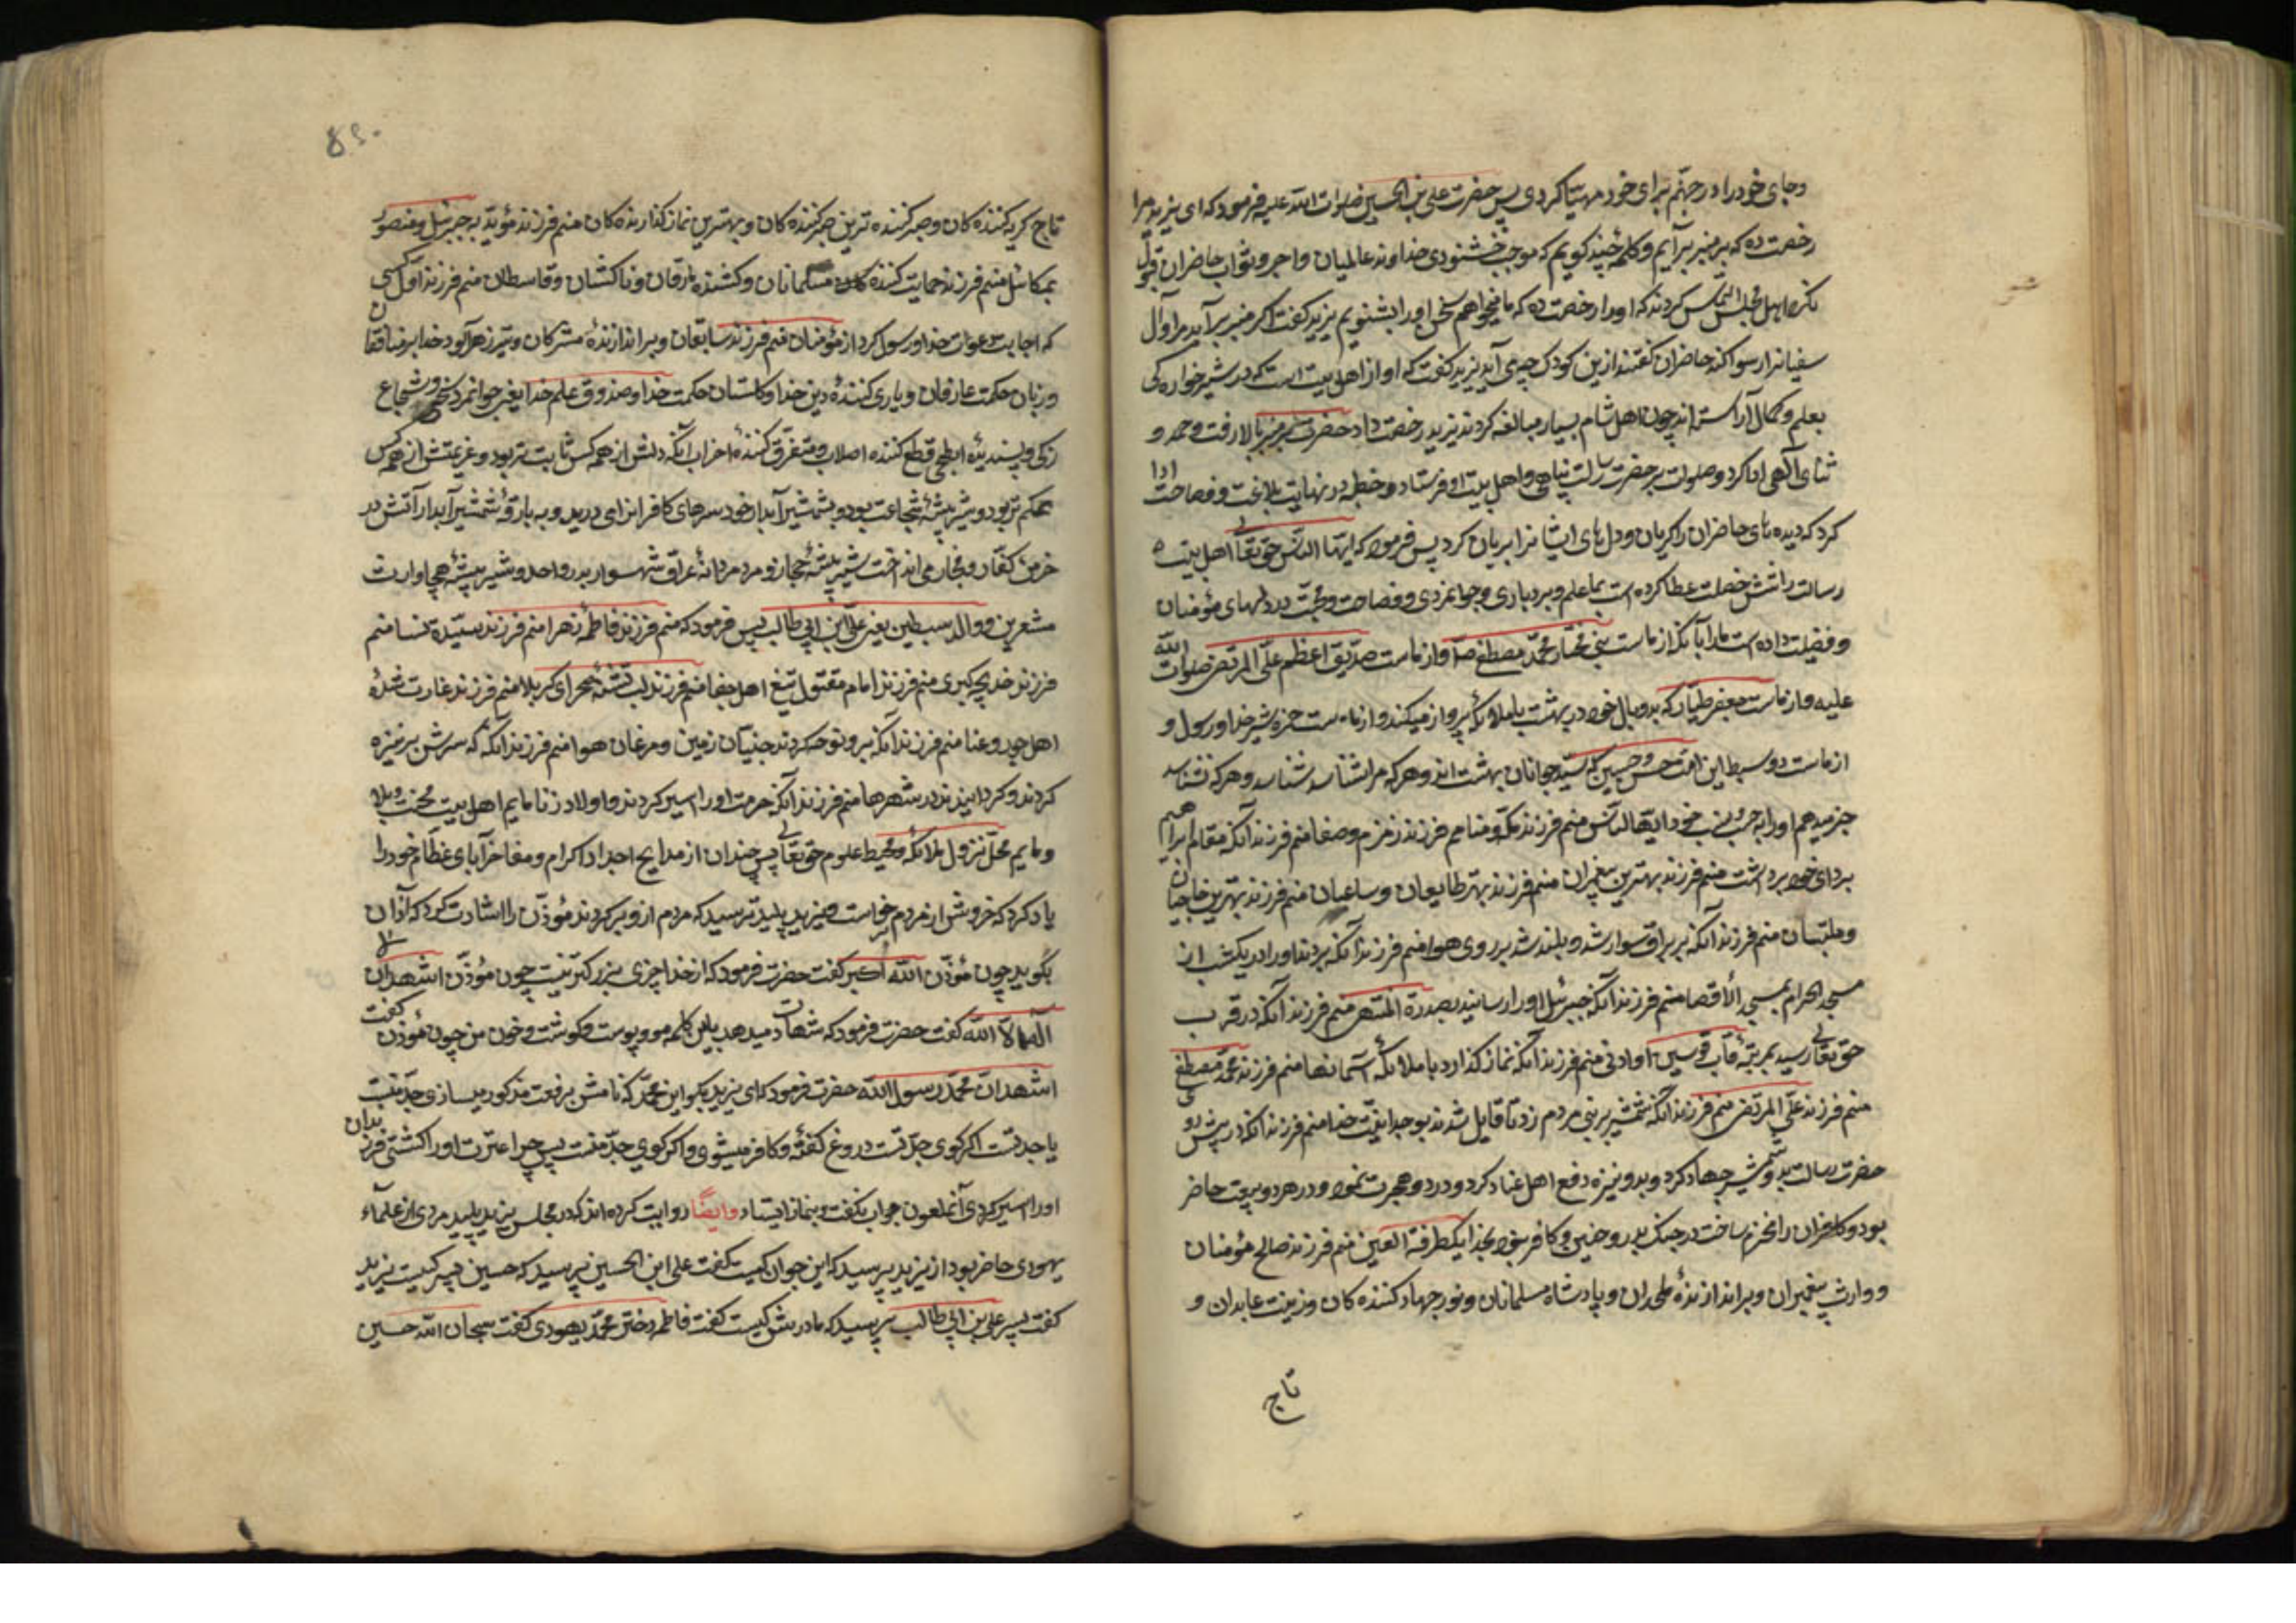 وجای خود را در جهنم برای خود مهیا کردی پس حضرت علی بن الحسین صلوات الله علیه فرمود که ای یزید مرا
رخصت ده که بر منبر برآیم و کلمهٔ چند کویم که موجب خشنودی خداوند عالمیان و اجر و ثواب حاضران قبول
نکرد اهل مجلس التماس کردند که او را رخصت ده که ما میخواهم سخن او را بشنویم یزید کفت اکر منبر برآید مرا و آل
سفیان را رسوا کند حاضران کفتند ازین کودک چه می آید یزید کفت که او از اهل بیت است که در شیر خوارکی
بعلم و کمال آراسته اند چون اهل شام بسیار مبالغه کردند یزید رخصت داد حضرت بر منبر بالا رفت و حمد و
ثنای آلهی ادا کرد و صلوات بر حضرت رسالت پناهی و اهل بیت او فرستاد و خطبه در نهایت بلاغت و فصاحت ادا
کرد که دیده های حاضران را کریان و دل های ایشانرا بریان کرد پس فرمود که ایها الناس حق تعالی اهل بیت
رسالت را شش خصلت عطا کرده است بما علم و بردباری و جوانمردی و فصاحت و محبت در دلهای مؤمنان
و فضیلت داده است ما را بآنکه از ماست نبی مختار محمد مصطفی ص و از ماست صدیق اعظم علی المرتضی صلوات الله
علیه و از ماست جعفر طیار که بدو بال خود در بهشت با ملائکه پرواز میکند و از ماست حمزه شیر خدا و رسول و
از ماست دو سبط این امت حسن و حسین که سید جوانان بهشت اند و هر که مرا شناسد شناسد و هر که نشناسد
خبر میدهم او را به حسب و نسب خود ایها الناس منم فرزند مکه و منا منم فرزند زمزم و صفا منم فرزند آنکه مقام ابراهیم
بردای خود برداشت منم فرزند بهترین پیغمبران منم فرزند بهتر طایفان و ساعیان منم فرزند بهترین حاجیان
و ملبیان منم فرزند آنکه بر براق سوار شد و بلند شد بر روی هوا منم فرزند آنکه بردند او را در یکشب از
مسجد الحرام بمسجد الأقصا منم فرزند آنکه جبرئیل او را رسانید بصدرة المنتهی منم فرزند آنکه در قرب
حق تعالی رسید بمرتبهٔ قاب قوسین او ادنی منم فرزند آنکه نماز کذارد با ملائکهٔ آسمانها منم فرزند محمد مصطفی
منم فرزند علی المرتضی منم فرزند آنکه شمشیر بر بینی مردم زد تا قایل شدند بوحدانیت خدا منم فرزند آنکه در پیش روی
حضرت رسالت بدو شمشیر جهاد کرد و بدو نیزه دفع اهل عناد کرد و در دو هجرت نمود و در هر دو بیعت حاضر
بود و کافران را منهزم ساخت در جنک بدر و حنین و کافر نبود بخدا یکطرفة العین منم فرزند صالح مؤمنان
و وارث پیغمبران و براندازندهٔ ملحدان و پادشاه مسلمانان و نور جهاد کننده کان و زینت عابدان و
تاج
تاج کریه کننده کان و صبر کننده ترین صبر کننده کان و بهترین نماز کذارنده کان منم فرزند مؤید به جبرئیل و منصور
بمیکائیل منم فرزند حمایت کننده مسلمانان و کشنده مارقان و ناکثان و قاسطان منم فرزند اول کسی
که اجابت دعوت خدا و رسول کرد از مؤمنان منم فرزند سابقان و براندازندهٔ مشرکان و تیر زهرآلود خدا بر منافقان
و زبان حکمت عارفان و یاری کنندهٔ دین خدا و کلستان حکمت خدا و صندوق علم خدا یعنی جوانمرد سخی و شجاع
زکی و پسندیدهٔ ابطحی قطع کننده اصلاب و متفرق کنندهٔ احزاب آنکه دلش از همه کس ثابت تر بود و عزیمتش از همه کس
محکم تر بود و شیر بیشهٔ شجاعت بود و بشمشیر آبدار خود سرهای کافران را می درید و به بارقهٔ شمشیر آبدار آتش در
خرمن کفار و فجار می انداخت شیر بیشهٔ حجاز و مرد مردانهٔ عراق شهسوار بدر و احد و شیر بیشهٔ هیجا وارث
مشعرین و والد سبطین یعنی علی ابن ابی طالب پس فرمود که منم فرزند فاطمه زهرا منم فرزند سیدة نسا منم
فرزند خدیجه کبری منم فرزند امام مقتول تیغ اهل جفا منم فرزند لب تشنهٔ صحرای کربلا منم فرزند غارت شدهٔ
اهل جور و عنا منم فرزند آنکه برو نوحه کردند جنیان زمین و مرغان هوا منم فرزند آنکه سرش بر نیزه
کردند و کردانیدند در شهرها منم فرزند آنکه حرمت او را اسیر کردند و اولاد زنا مایم اهل بیت محنت و بلا
و مایم محل نزول ملائکه و محیط علوم حق تعالی پس چندان از مدایح اجداد کرام و مفاخر آبای عظام خود را
یاد کرد که خروش از مردم برخواست و یزید پلید ترسید که مردم ازو برکردند مؤذن را اشارت کرد که اذان
بگوید چون مؤذن الله اکبر کفت حضرت فرمود که از خدا چیزی بزرکتر نیست چون مؤذن اشهد ان لا
اله الا الله کفت حضرت فرمود که شهادت میدهد باین کلمه مو و پوست و کوشت و خون من چون مؤذن کفت
اشهد ان محمد رسول الله حضرت فرمود که ای یزید بکو این محمد که نامش برفعت مذکور میسازی جد منست
یا جد تست اکر کوی جد تست دروغ کفتهٔ و کافر میشوی و اکر کوی جد منست پس چرا عترت او را کشتی و فرزندان
او را اسیر کردی آنملعون جواب نکفت و بنماز ایستاد و ایضا روایت کرده اند که در مجلس یزید پلید مردی از علمآء
یهودی حاضر بود از یزید پرسید که این جوان کیست کفت علی ابن الحسین پرسید که حسین پسر کیست یزید
کفت پسر علی بن ابی طالب پرسید که مادرش کیست کفت فاطمه دختر محمد یهودی کفت سبحان الله حسین